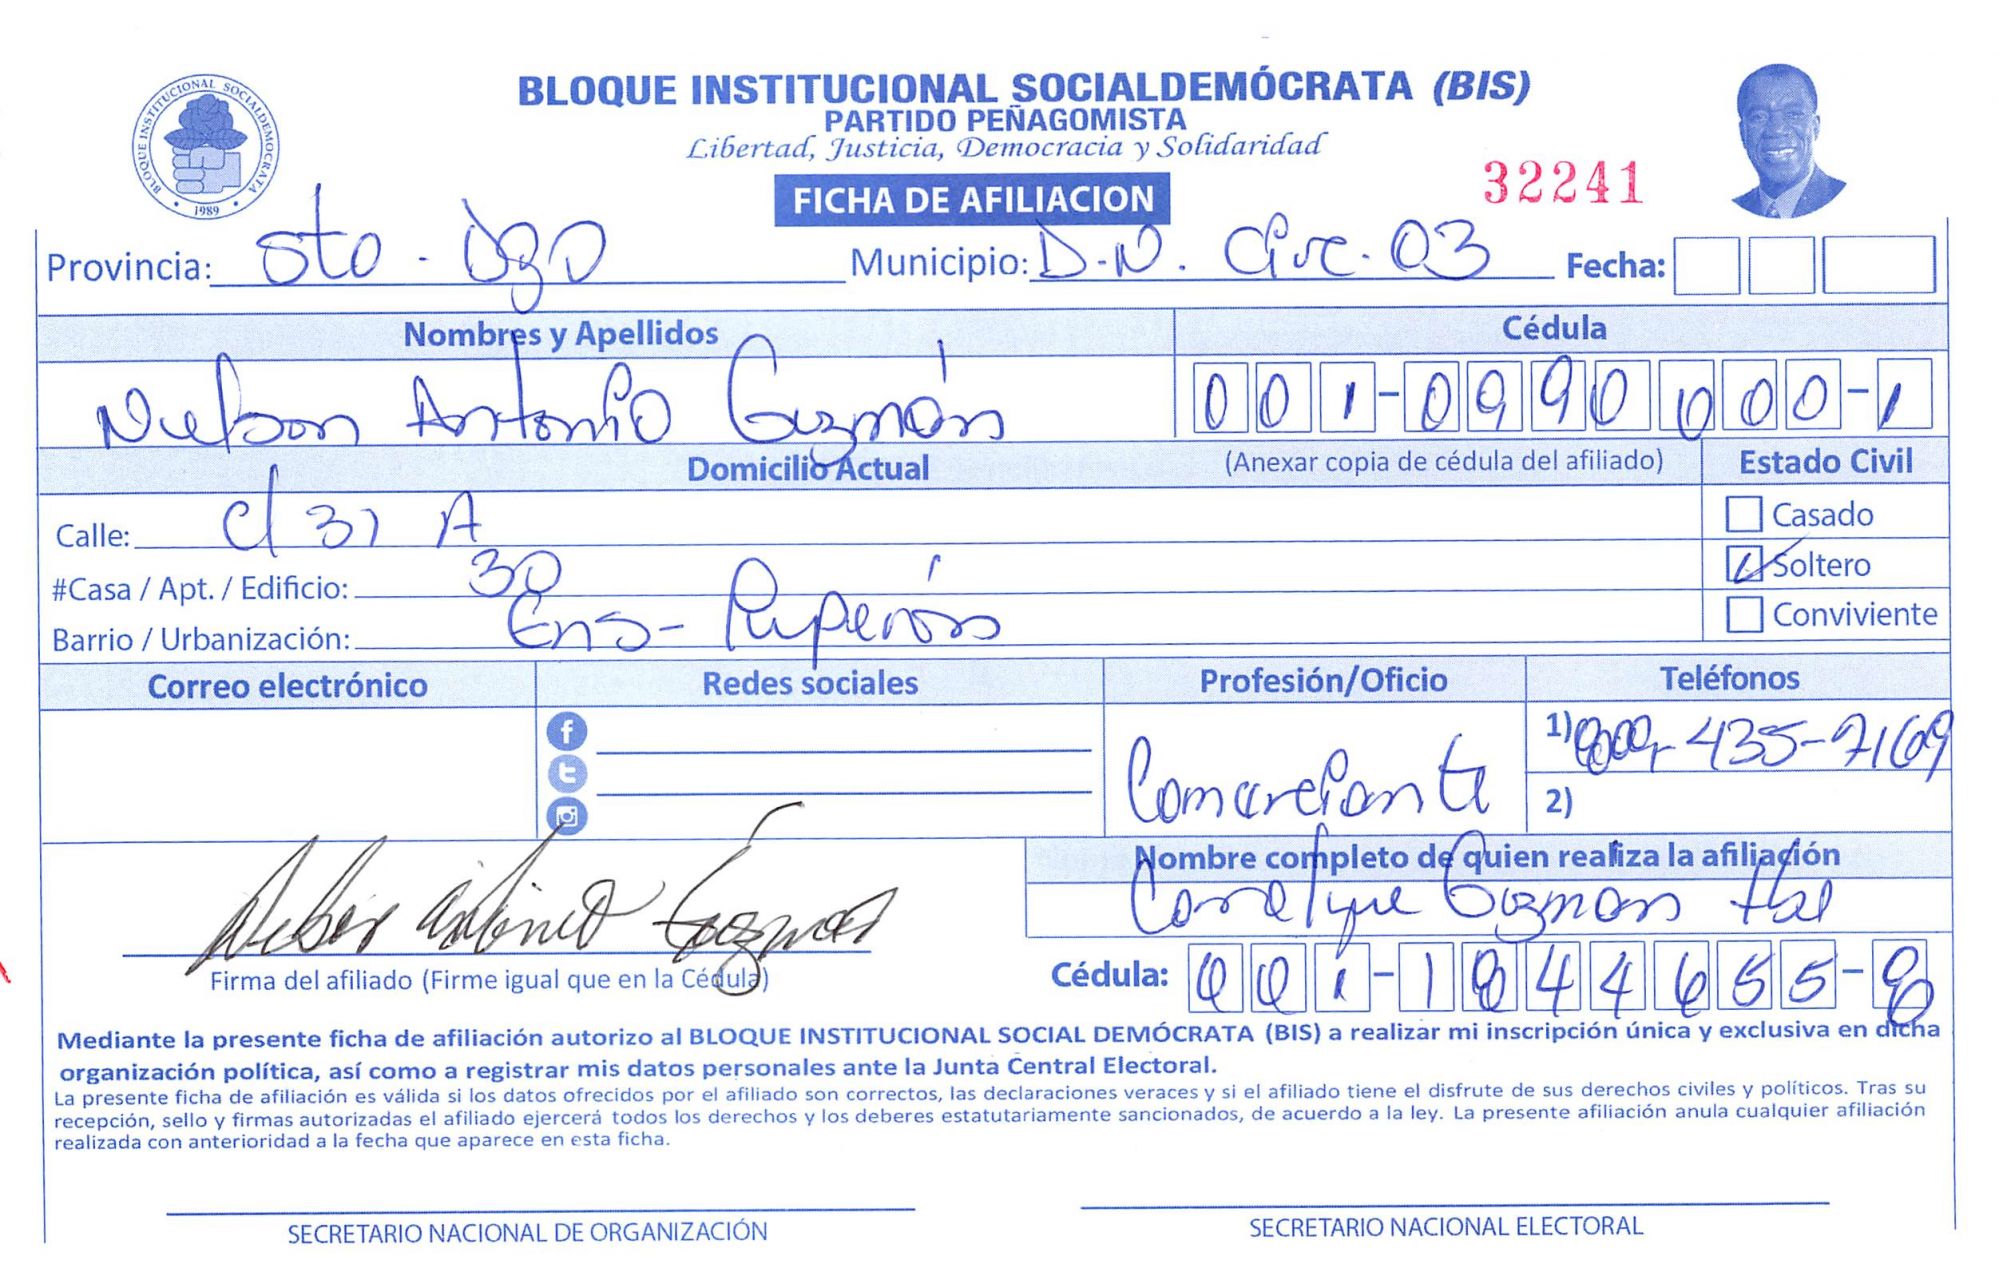 BLOQUE INSTITUCIONAL SOCIALDEMÓCRATA (BIS)
PARTIDO PEÑAGOMISTA
Libertad, Justicia, Democracia y Solidaridad
BLOQUE INSTITUCIONAL SOCIALDEMOCRATA
1989
32241
FICHA DE AFILIACION
Provincia: Sto. Dgo Municipio: D.N. Circ. 03 Fecha:
Nombres y Apellidos Cédula
Nelson Antonio Guzmán 001-0990000-1
Domicilio Actual (Anexar copia de cédula del afiliado) Estado Civil
Calle: c/ 31 A Casado
#Casa / Apt. / Edificio: 30 Soltero
Barrio / Urbanización: Ens- Luperón Conviviente
Correo electrónico Redes sociales Profesión/Oficio Teléfonos
Comerciante 1) 809-435-7169
2)
Nombre completo de quien realiza la afiliación
Guzman
Nelson Antonio Guzman
Firma del afiliado (Firme igual que en la Cédula) Cédula: 001-1844655-8
Mediante la presente ficha de afiliación autorizo al BLOQUE INSTITUCIONAL SOCIAL DEMÓCRATA (BIS) a realizar mi inscripción única y exclusiva en dicha
organización política, así como a registrar mis datos personales ante la Junta Central Electoral.
La presente ficha de afiliación es válida si los datos ofrecidos por el afiliado son correctos, las declaraciones veraces y si el afiliado tiene el disfrute de sus derechos civiles y políticos. Tras su
recepción, sello y firmas autorizadas el afiliado ejercerá todos los derechos y los deberes estatutariamente sancionados, de acuerdo a la ley. La presente afiliación anula cualquier afiliación
realizada con anterioridad a la fecha que aparece en esta ficha.
SECRETARIO NACIONAL DE ORGANIZACIÓN SECRETARIO NACIONAL ELECTORAL